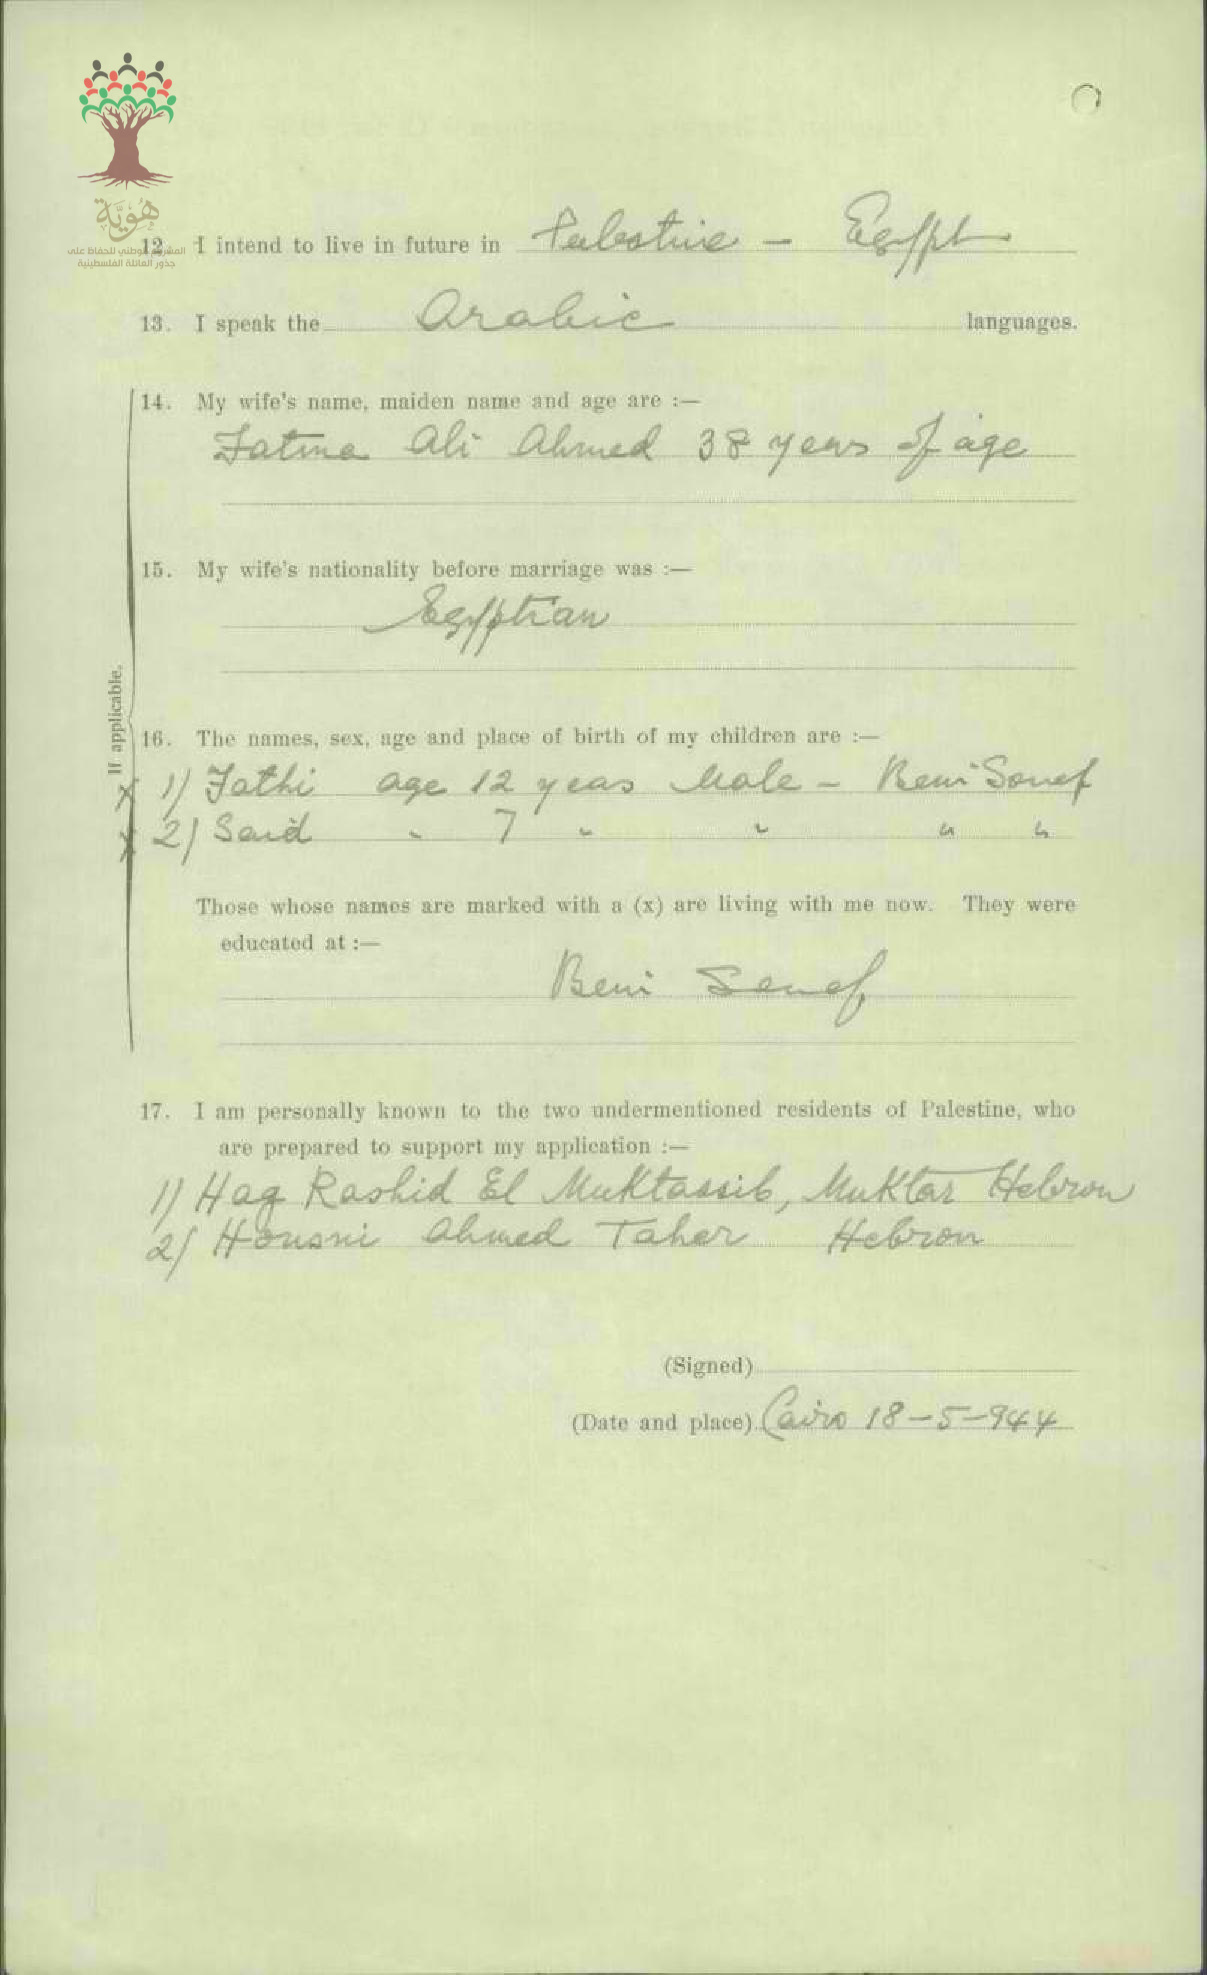 هُوِيَّة
المشروع الوطني للحفاظ على
جذور العائلة الفلسطينية
12. I intend to live in future in Palestine – Egypt
13. I speak the Arabic languages.
If applicable.
14. My wife's name, maiden name and age are :—
Fatma Ali Ahmed 38 years of age
15. My wife's nationality before marriage was :—
Egyptian
16. The names, sex, age and place of birth of my children are :—
x 1) Fathi age 12 years Male – Beni Souef
x 2) Said " 7 " " " "
Those whose names are marked with a (x) are living with me now. They were
educated at :—
Beni Souef
17. I am personally known to the two undermentioned residents of Palestine, who
are prepared to support my application :—
1) Hag Rashid El Muktassib, Muktar Hebron
2) Housni Ahmed Taher Hebron
(Signed)
(Date and place) Cairo 18-5-944